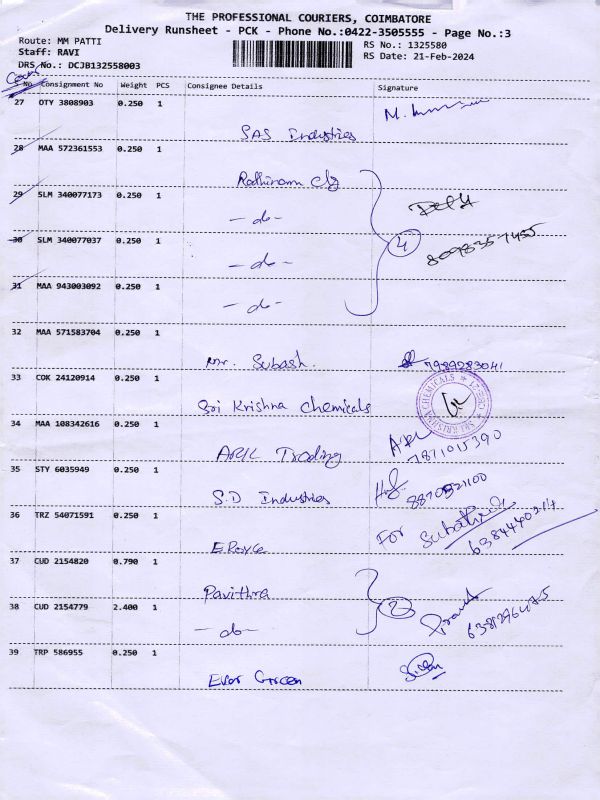 THE PROFESSIONAL COURIERS, COIMBATORE
Delivery Runsheet - PCK - Phone No.:0422-3505555 - Page No.:3
Route: MM PATTI
RS No.: 1325580
Staff: RAVI
RS Date: 21-Feb-2024
DRS No.: DCJB132558003
No Consignment No Weight PCS Consignee Details Signature
27 OTY 3808903 0.250 1
SAS Industries
28 MAA 572361553 0.250 1
29 SLM 340077173 0.250 1
- do -
30 SLM 340077037 0.250 1
4
- do -
8098357455
31 MAA 943003092 0.250 1
- do -
32 MAA 571583704 0.250 1
Mr. Subash. 7989283041
33 COK 24120914 0.250 1
SRI KRISHNA CHEMICALS
Sri Krishna Chemicals
34 MAA 108342616 0.250 1
Trading 7871015390
35 STY 6035949 0.250 1
S.D Industries
36 TRZ 54071591 0.250 1
For
6384440214
37 CUD 2154820 0.790 1
Pavithra
2
38 CUD 2154779 2.400 1
- do -
39 TRP 586955 0.250 1
Ever Green